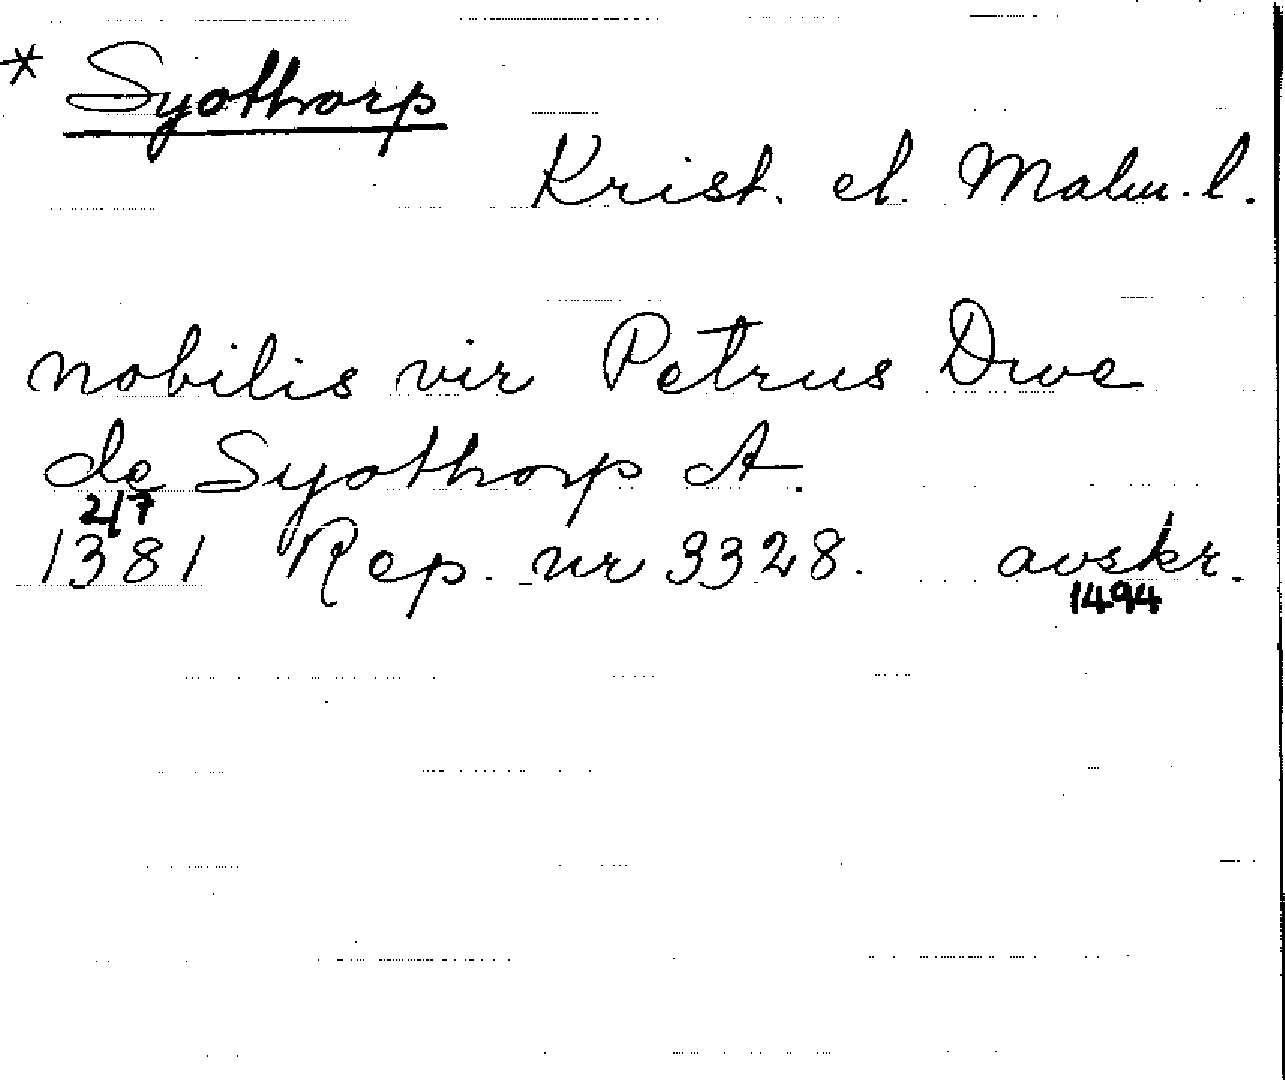 * Syothorp
Krist. el. Malm. l.
nobilis vir Petrus Dwe
de Syothorp A.
2/7
1381 Rep. nr 3328. avskr.
1494